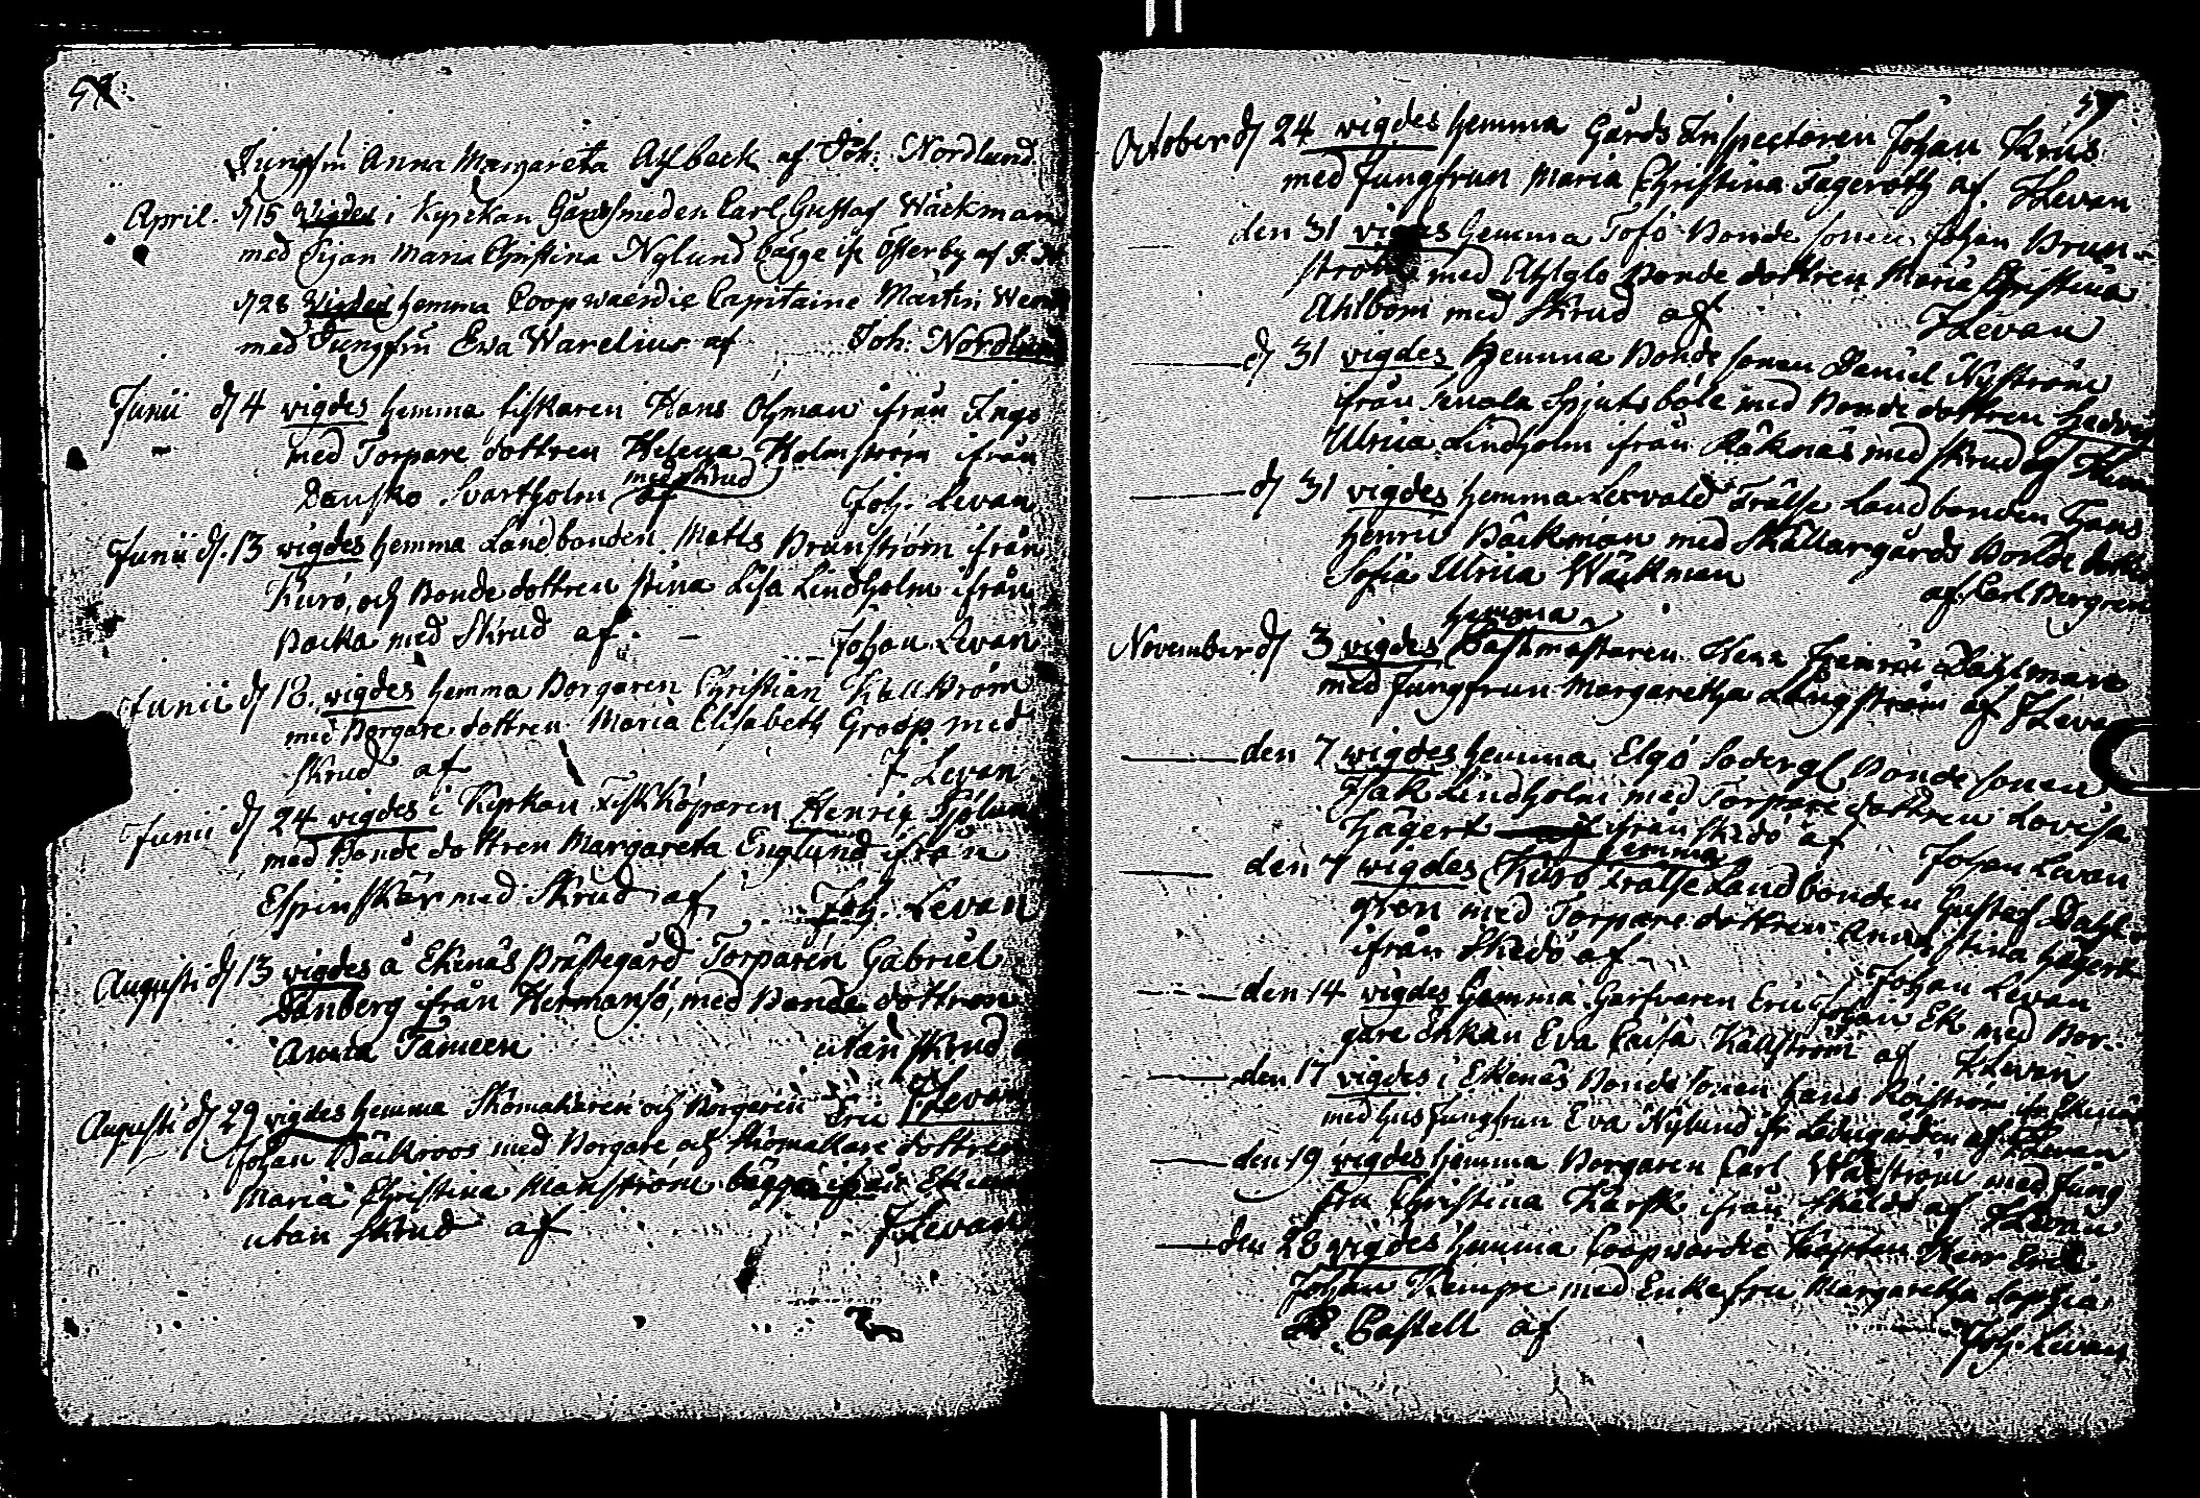 Jungfrn Anna Margareta Ahlbeck af Joh: Nordlund
April. d 15 Vigdes i Kyrckan Gårdsmeden Carl Gustaf Wäckman
med Pijan Maria Christina Nylund bägge ifr Österby af J. N
d 28 Vigdes hemma Coopwaerdie Capitaine Martin
med Jungfrn Ewa Warelius af Joh: Nordlund
Junii d 4 vigdes hemma fiskaren Hans Öhman ifrån Ingo
med Torpare dottren Helena Holmström ifrån
med Skrud
Danskog Svartholm af Joh. Levan
Junii d. 13 vigdes hemma Landbonden Matts Brunström ifrån
Kurö, och Bonde dottren Stina Lisa Lindholm ifrån
Backa med Skrud af. Johan Levan
Junii d 18. vigdes hemma Borgaren Christian Källström
med Borgare dottren Maria Elisabeth Groop med
Skrud af J Levan
Junii d 24 vigdes i Kyrkan Fisk Köparen Henric Sjölund
med Bonde dottren Margareta Englund ifrån
Espinskär med Skrud af Joh. Levan
Augusti d 13 vigdes å Ekenäs Prästegård Torparen Gabriel
Danberg ifrån Hermansö, med Bonde dottren
Anna utan Skrud
J. Levan
Augusti d 29 vigdes hemma Skomakaren och Borgaren Eric
Johan Bäckroos med Borgare och Skomakare dottren
Maria Christina Manström bägge ifrån Ekenäs
utan Skrud af J. Levan
57
October d 24 vigdes hemma Gårds Inspectoren Johan Krus
med Jungfrun Maria Christina Fageroth af. J Levan
den 31 vigdes hemma Tofö Bonde sonen Johan Brun-
ström med Bonde dottren Maria Christina
Ahlbom med Skrud af J Levan
d 31 vigdes hemma Bonde sonen Daniel Nyström
ifrån Spjutsböle med Bonde dottren Hedvig
Ulrica Lindholm ifrån Räknäs med Skrud af
d 31 vigdes hemma Frälse Landbonden Hans
Henric Bäckman med Skällargårds Bonde dottren
Sofia Ulrica Wäckman af Carl Bergren
hemma
November d 3 vigdes Postmästaren Herr Dahlman
med Jungfrun Margaretha Långström af J Levan
den 7 vigdes hemma Elgö Sodergl Bonde sonen
Isak Lindholm med Torpare dottren Lovisa
Hägert ifrån Skedö af Johan Levan
hemma
den 7 vigdes Kurö Frälse Landbonden Gustaf Dahl-
gren med Torpare dottren Anna Stina Hägert
ifrån Skedö af Johan Levan
den 14 vigdes hemma Garfvaren Eric Johan Ek med Bor-
gare Enkan Eva Caisa Källström af J Levan
den 17 vigdes i Ekenäs Bonde sonen Hans ifr Ekenäs
med hus Jungfrun Eva Nylund ifr af J Levan
den 19 vigdes hemma Borgaren Carl med Jung
fru Christina Harsk ifrån af J Levan
den 28 vigdes hemma Coopvardie Herr Eric
Johan Kempe med Enkefru Margaretha Sophia
Castell af Joh. Levan